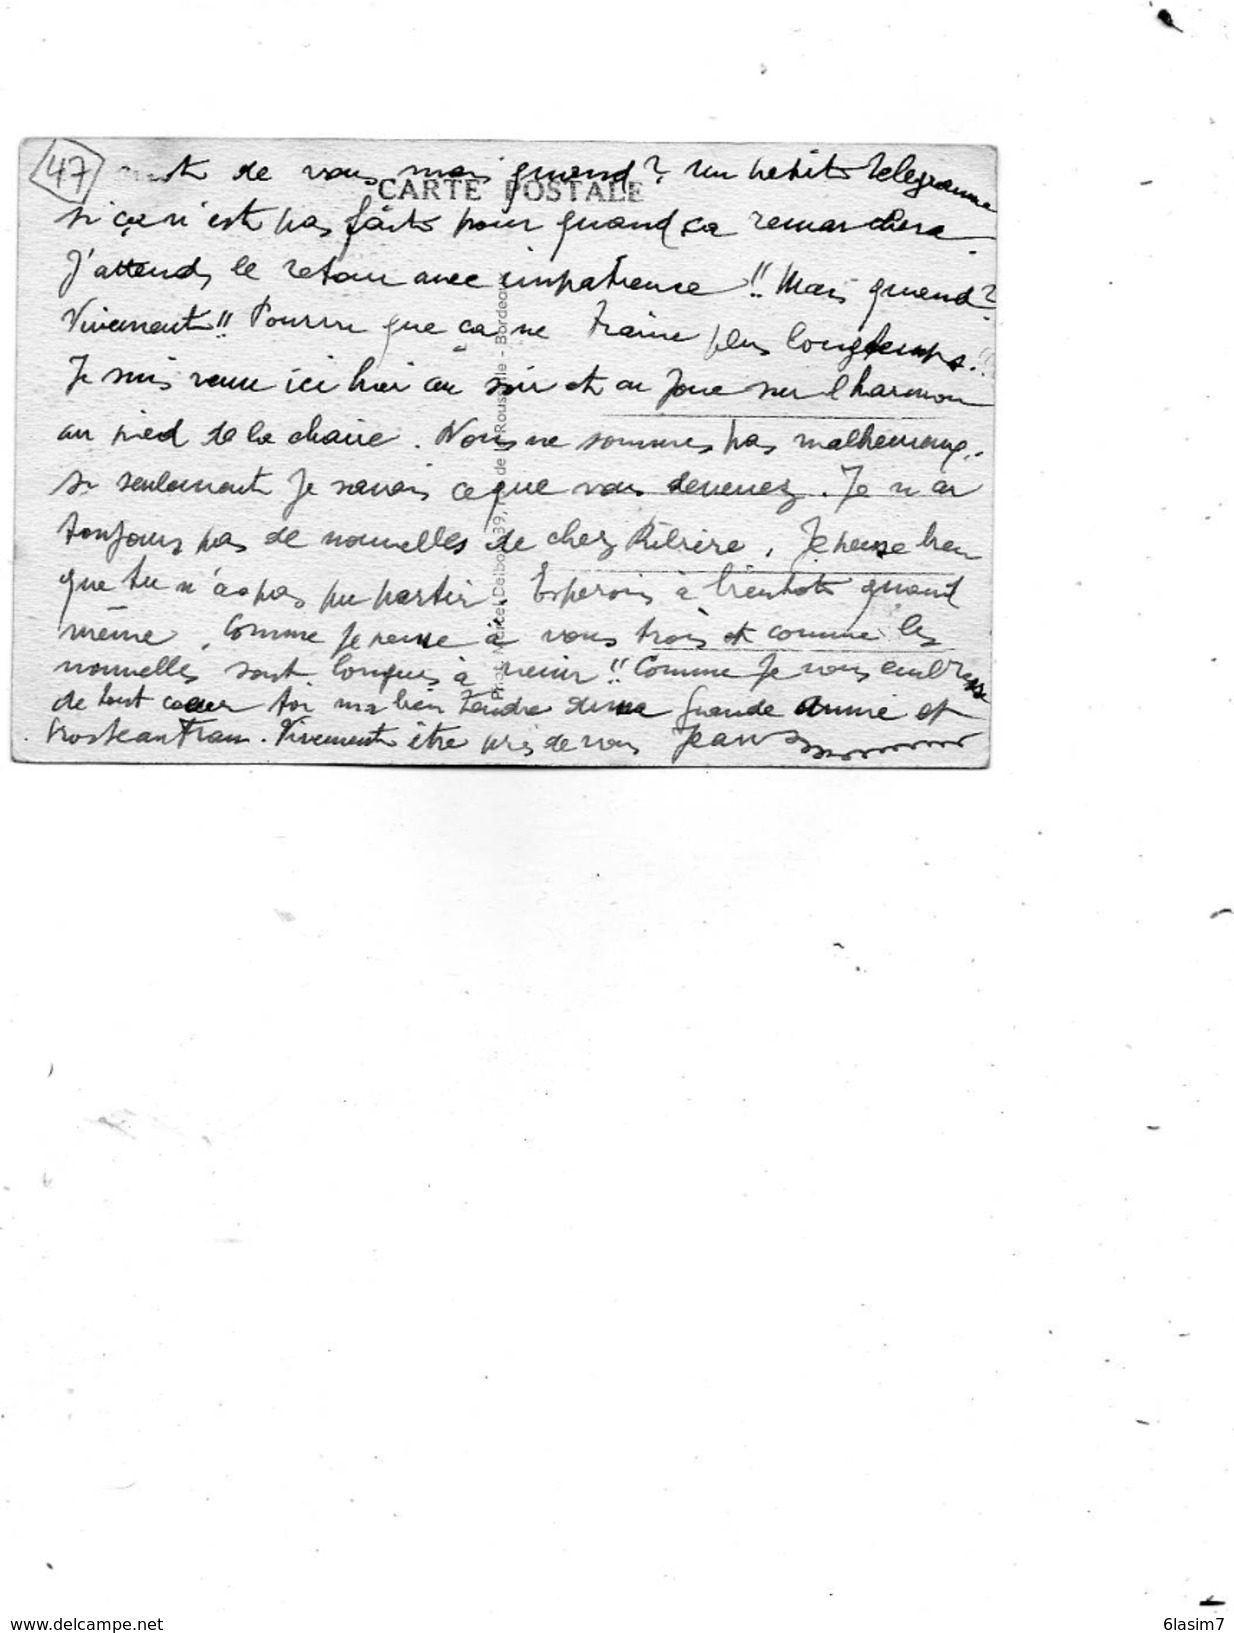 47
de vous mais quand? un petit télégramme
CARTE POSTALE
si ça n'est pas fait pour quand ça remarchera.
J'attends le retour avec impatience!! Mais quand?
Vivement!! Pourvu que ça ne traine plus longtemps!!
Je suis venu ici hier au soir et on joue sur l'harmon
au pied de la chaire. Nous ne sommes pas malheureux..
si seulement je savais ce que vous devenez. Je n'ai
toujours pas de nouvelles de chez Ribière. Je pense bien
que tu n'as pas pu partir. Espérons à bientôt quand
même. Comme je pense à vous trois et comme les
nouvelles sont longues à venir!! Comme je vous embrasse
de tout coeur toi ma bien tendre Grande Amie et
Vivement être près de vous Jean
Phot. Marcel Delboy, 39, de la Rousselle - Bordeaux
www.delcampe.net
6lasim7